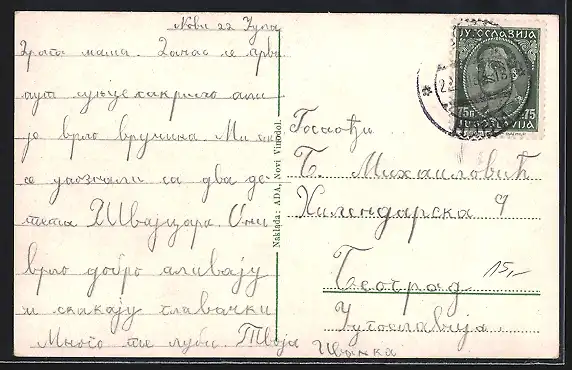 Нови 22 Јула
Драга мама. Данас се први
пут сунце сакрило али
је врло врућина. Ми смо
се упознали са два де-
тета из Швајцара. Они
врло добро пливају
и скачу главачки
Много те љуби. Твоја
Иванка
Naklada: ADA, Novi Vinodol.
ЈУГОСЛАВИЈА
75п 75
ЈУГОСЛАВИЈА
Госпођи
Б. Михаиловић
Хилендарска 9
Београд
Југославија
15,-